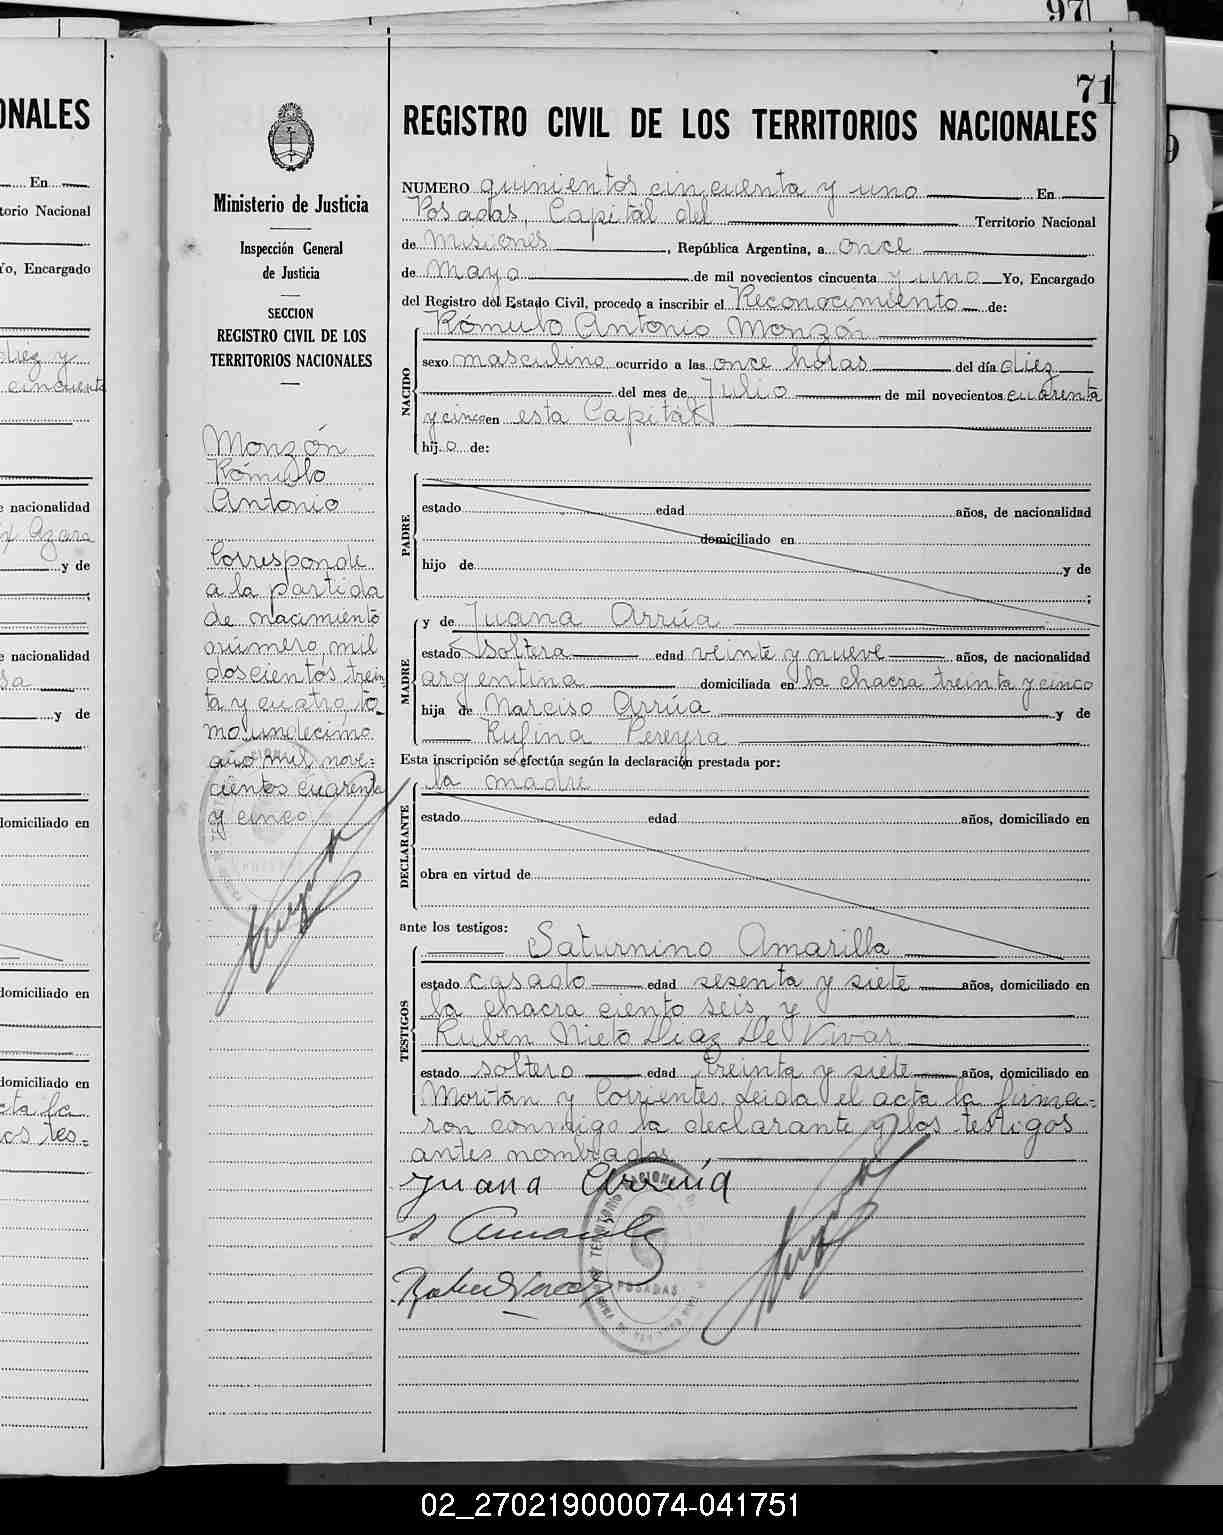 97
71
REGISTRO CIVIL DE LOS TERRITORIOS NACIONALES
Ministerio de Justicia
Inspección General
de Justicia
SECCION
REGISTRO CIVIL DE LOS
TERRITORIOS NACIONALES
Monzón
Rómulo
Antonio
Corresponde
a la partida
de nacimiento
número mil
doscientos trein-
ta y cuatro, to-
mo undécimo
año mil nove-
cientos cuarenta
y cinco
NUMERO quinientos cincuenta y uno En
Posadas, Capitál del Territorio Nacional
de Misiones, República Argentina, a once
de Mayo de mil novecientos cincuenta y uno Yo, Encargado
del Registro del Estado Civil, procedo a inscribir el Reconocimiento de:
NACIDO
Rómulo Antonio Monzón
sexo masculino ocurrido a las once horas del día diez
del mes de Julio de mil novecientos cuarenta
y cinco en esta Capitál
hijo de:
PADRE
estado edad años, de nacionalidad
domiciliado en
hijo de y de
;
MADRE
y de Juana Arrúa
estado soltera edad veinte y nueve años, de nacionalidad
argentina domiciliada en la chacra treinta y cinco
hija de Narciso Arrúa y de
Rufina Pereyra
Esta inscripción se efectúa según la declaración prestada por:
DECLARANTE
la madre
estado edad años, domiciliado en
obra en virtud de
ante los testigos:
TESTIGOS
Saturnino Amarilla
estado casado edad sesenta y siete años, domiciliado en
la chacra ciento seis, y
Ruben Nieto Diaz De Vivar
estado soltero edad treinta y siete años, domiciliado en
Moritán y Corrientes. Leida el acta la firma-
ron conmigo la declarante y los testigos
antes nombrados.
Juana Arrúa
S Amarilla
TERRITORIO NACIONAL
POSADAS
ONALES
En
torio Nacional
Yo, Encargado
diez y
cincuenta
e nacionalidad
Azara
y de
;
e nacionalidad
sa
y de
domiciliado en
domiciliado en
domiciliado en
acta la
los tes-
02_270219000074-041751